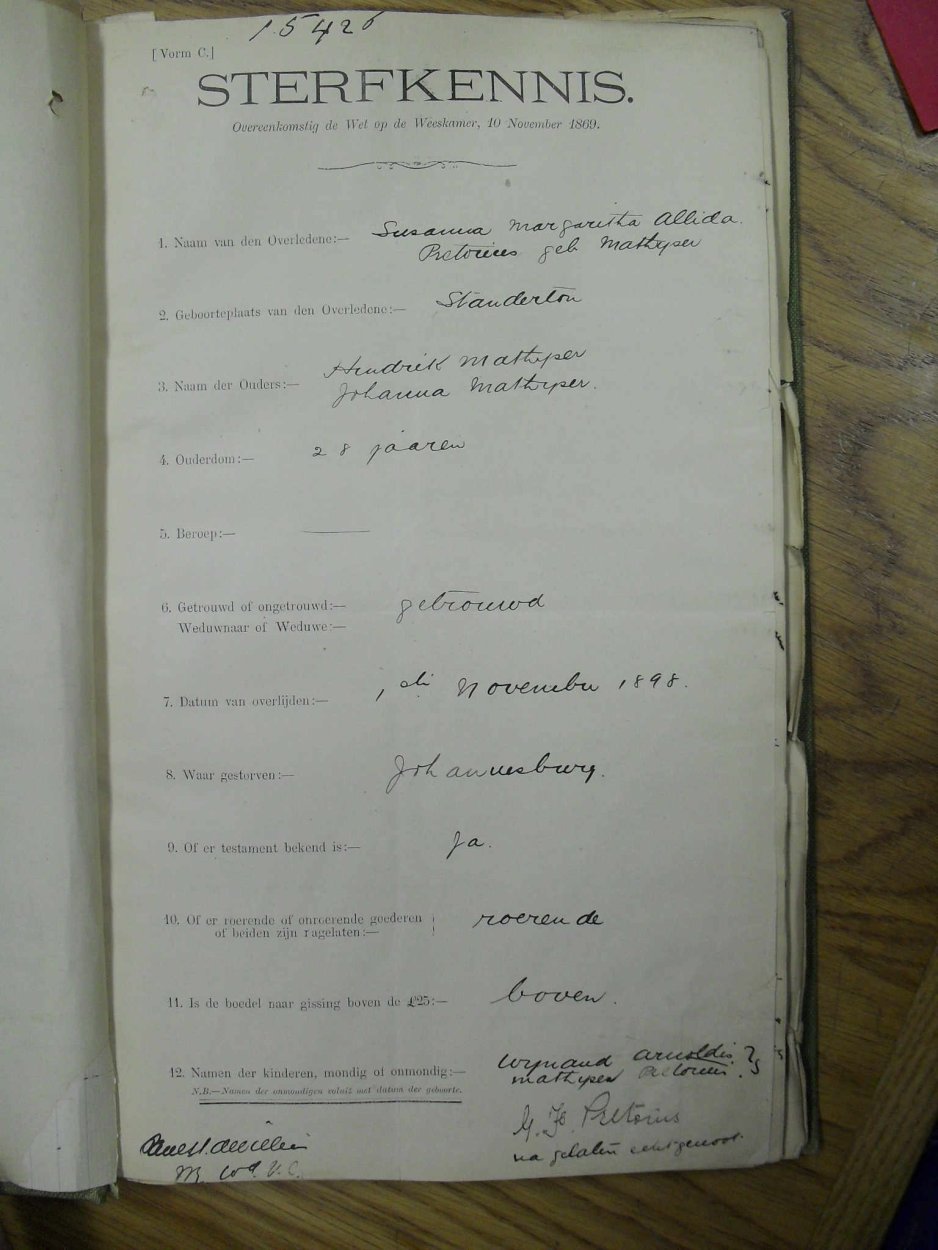 15426
[Vorm C.]
STERFKENNIS.
Overeenkomstig de Wet op de Weeskamer, 10 November 1869.
1. Naam van den Overledene:— Susanna Margaritha Allida
Pretorius geb Mathyser
2. Geboorteplaats van den Overledene:— Standerton
3. Naam der Ouders:— Hendrik Mathyser
Johanna Mathyser.
4. Ouderdom:— 28 jaaren
5. Beroep:— —
6. Getrouwd of ongetrouwd:— getrouwd
Weduwnaar of Weduwe:—
7. Datum van overlijden:— 1 November 1898.
8. Waar gestorven:— Johannesburg.
9. Of er testament bekend is:— Ja.
10. Of er roerende of onroerende goederen roerende
of beiden zijn nagelaten:—
11. Is de boedel naar gissing boven de £25:— boven.
12. Namen der kinderen, mondig of onmondig:— Wynand Arnoldis
Mathyser Pretorius
N.B.—Namen der onmondigen voluit met datum der geboorte.
Pretorius
na gelaten echtgenoot.